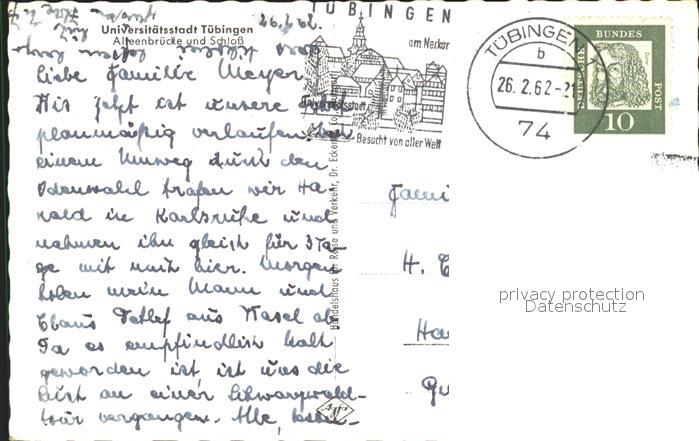 Universitätsstadt Tübingen
Alleenbrücke und Schloß
26.2.62.
Liebe Familie Meyer
Bis jetzt ist unsere
planmäßig verlaufen.
einem Umweg durch den
Odenwald trafen wir Ha-
rald in Karlsruhe und
nahmen ihn gleich für 3 Ta-
ge mit nach hier. Morgen
holen mein Mann und
Claus Detlef aus Nasel ab
Da es empfindlich kalt
geworden ist, ist uns die
Lust an einer Schwarzwald-
tour vergangen. Alle,
Handelshaus für Reise und Verkehr, Dr. Ecker
Agfa
TÜBINGEN
am Neckar
Universitätsstadt
Besucht von aller Welt
TÜBINGEN
b
26.2.62-21
74
DEUTSCHE BUNDESPOST
Dürer
10
Fami
H. C
Ha
privacy protection
Datenschutz